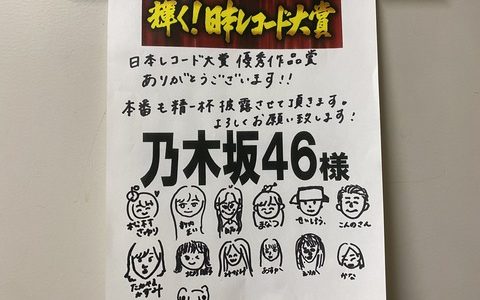 輝く!日本レコード大賞
日本レコード大賞 優秀作品賞
ありがとうございます!!
本番も精一杯披露させて頂きます。
よろしくお願い致します!
乃木坂46様
まなつ
こんのさん
かな